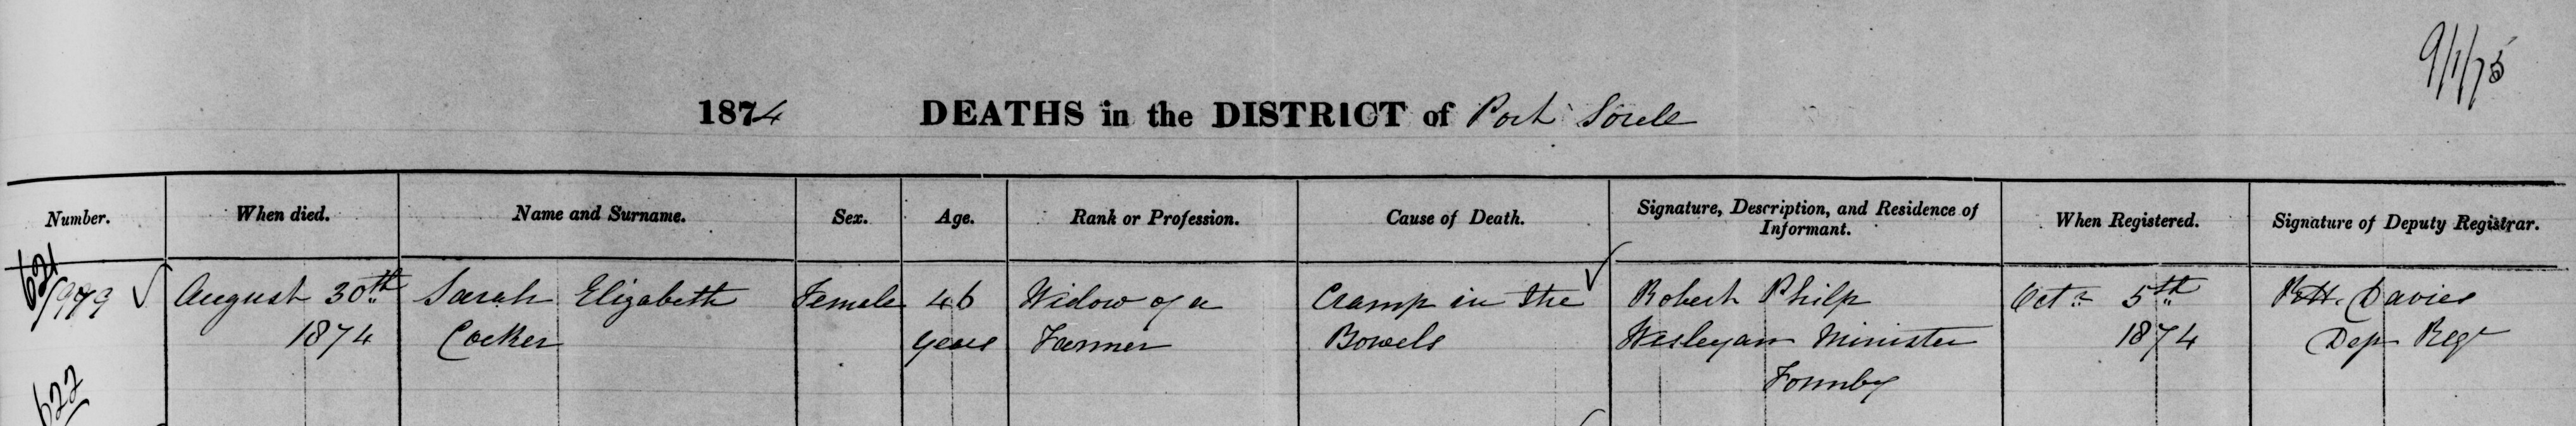 9/1/75
1874 DEATHS in the DISTRICT of Port Sorell
Number. When died. Name and Surname. Sex. Age. Rank or Profession. Cause of Death. Signature, Description, and Residence of Informant. When Registered. Signature of Deputy Registrar.
621
August 30th Sarah Elizabeth Female 46 Widow of a Cramp in the Robert Philp Octr 5th Davies
1874 Cocker years Farmer Bowels Wesleyan Minister 1874 Dep Regr
Formby
622